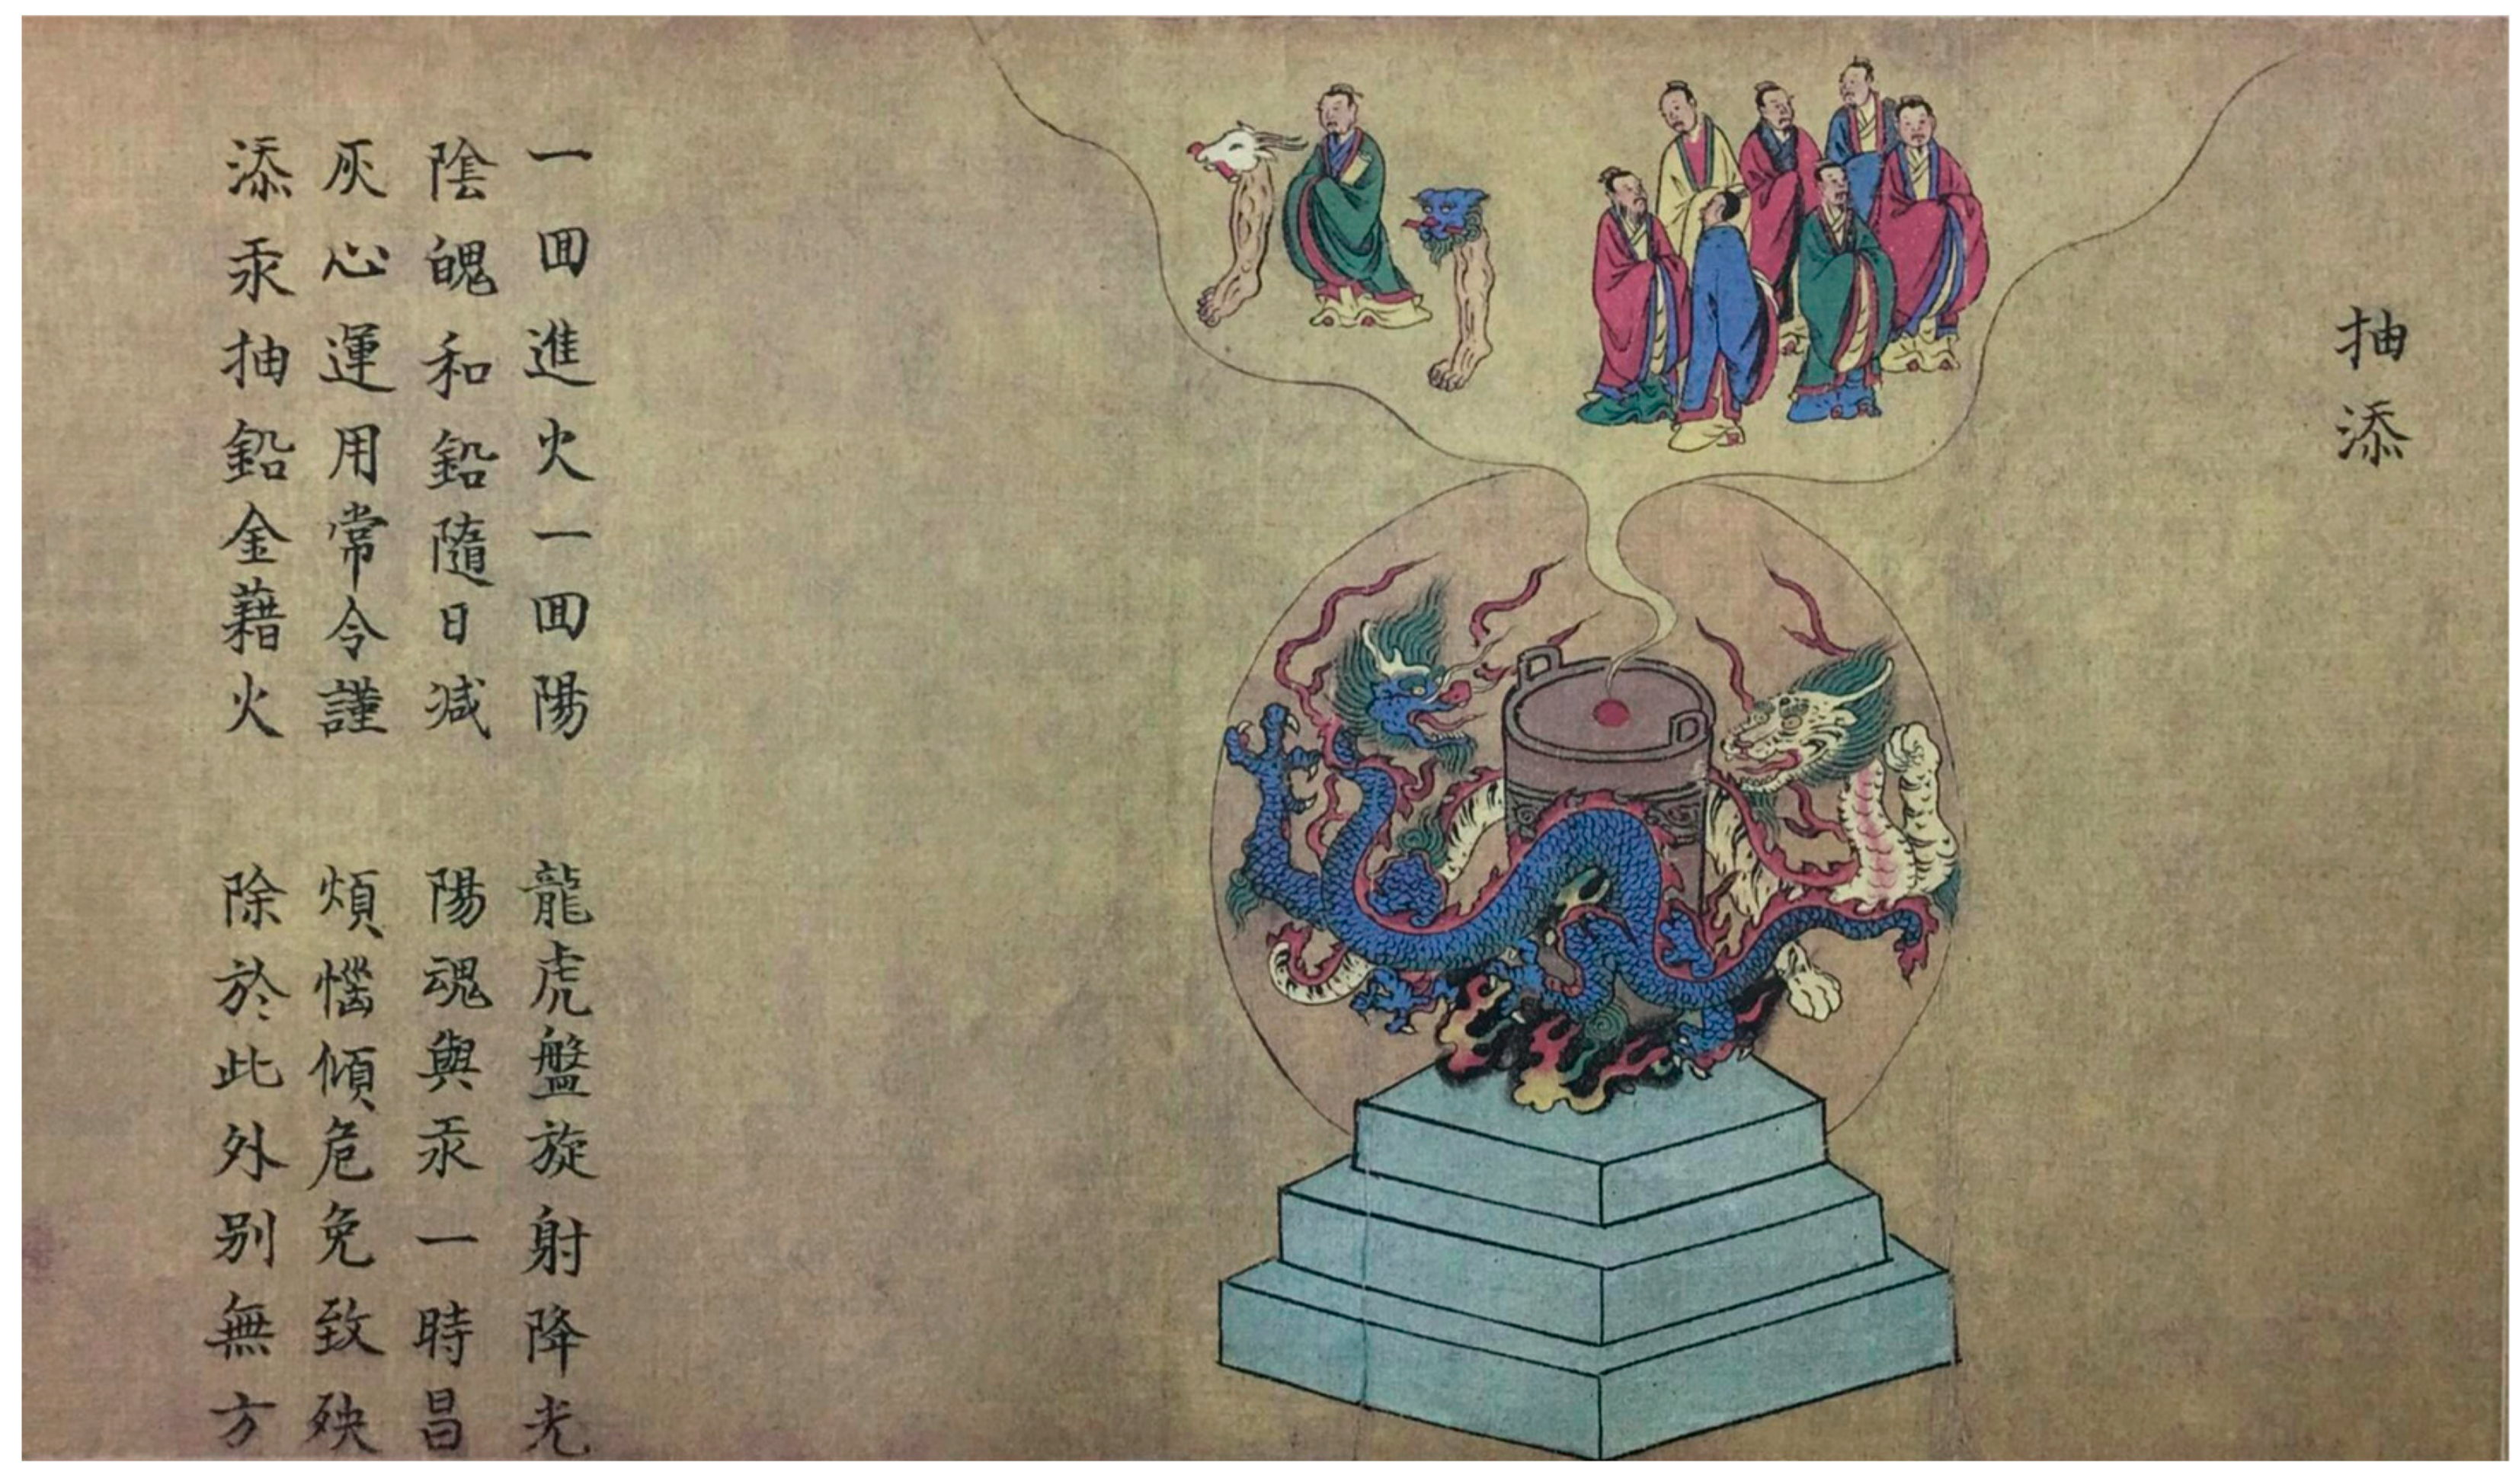 抽添
一囬進火一囬陽　龍虎盤旋射降光
陰魄和鉛隨日減　陽魂與汞一時昌
灰心運用常令謹　煩惱傾危免致殃
添汞抽鉛金藉火　除於此外别無方